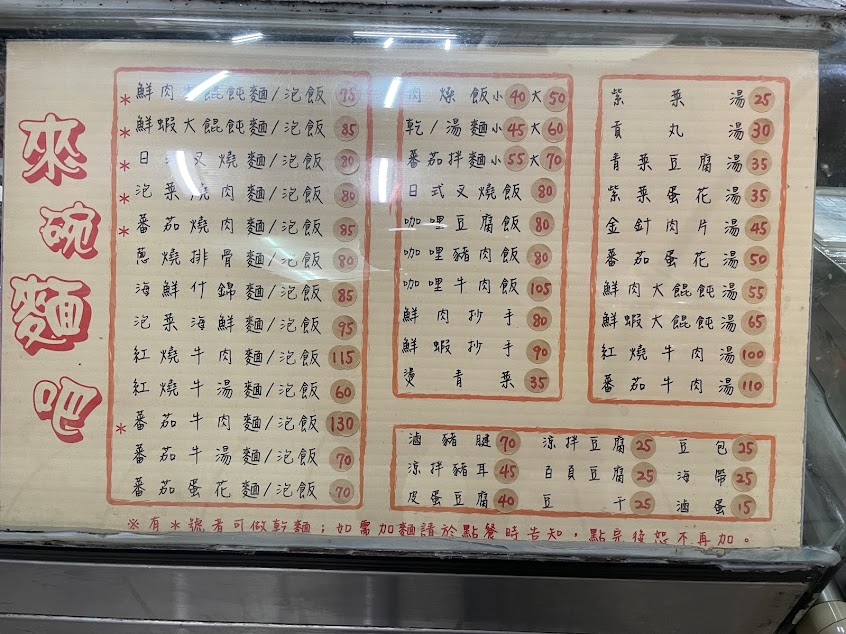 來碗麵吧
*鮮肉大餛飩麵/泡飯 75
*鮮蝦大餛飩麵/泡飯 85
*日式叉燒麵/泡飯 80
*泡菜燒肉麵/泡飯 80
*蕃茄燒肉麵/泡飯 85
蔥燒排骨麵/泡飯 80
海鮮什錦麵/泡飯 85
泡菜海鮮麵/泡飯 95
紅燒牛肉麵/泡飯 115
紅燒牛湯麵/泡飯 60
*蕃茄牛肉麵/泡飯 130
蕃茄牛湯麵/泡飯 70
蕃茄蛋花麵/泡飯 70
肉燥飯小40大50
乾/湯麵小45大60
蕃茄拌麵小55大70
日式叉燒飯 80
咖哩豆腐飯 80
咖哩豬肉飯 80
咖哩牛肉飯 105
鮮肉抄手 80
鮮蝦抄手 90
燙青菜 35
紫菜湯 25
貢丸湯 30
青菜豆腐湯 35
紫菜蛋花湯 35
金針肉片湯 45
蕃茄蛋花湯 50
鮮肉大餛飩湯 55
鮮蝦大餛飩湯 65
紅燒牛肉湯 100
蕃茄牛肉湯 110
滷豬腱 70 涼拌豆腐 25 豆包 25
涼拌豬耳 45 百頁豆腐 25 海帶 25
皮蛋豆腐 40 豆干 25 滷蛋 15
※有*號者可做乾麵；如需加麵請於點餐時告知，點完後恕不再加。